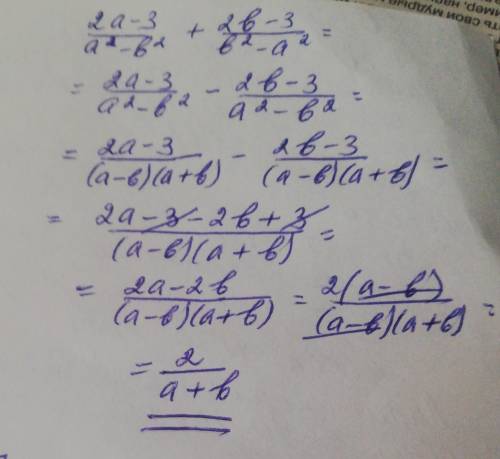 ть свои мудрые
(2a-3)/(a²-b²) + (2b-3)/(b²-a²) =
= (2a-3)/(a²-b²) - (2b-3)/(a²-b²) =
= (2a-3)/((a-b)(a+b)) - (2b-3)/((a-b)(a+b)) =
= (2a-3-2b+3)/((a-b)(a+b)) =
= (2a-2b)/((a-b)(a+b)) = 2(a-b)/((a-b)(a+b)) =
= 2/(a+b)